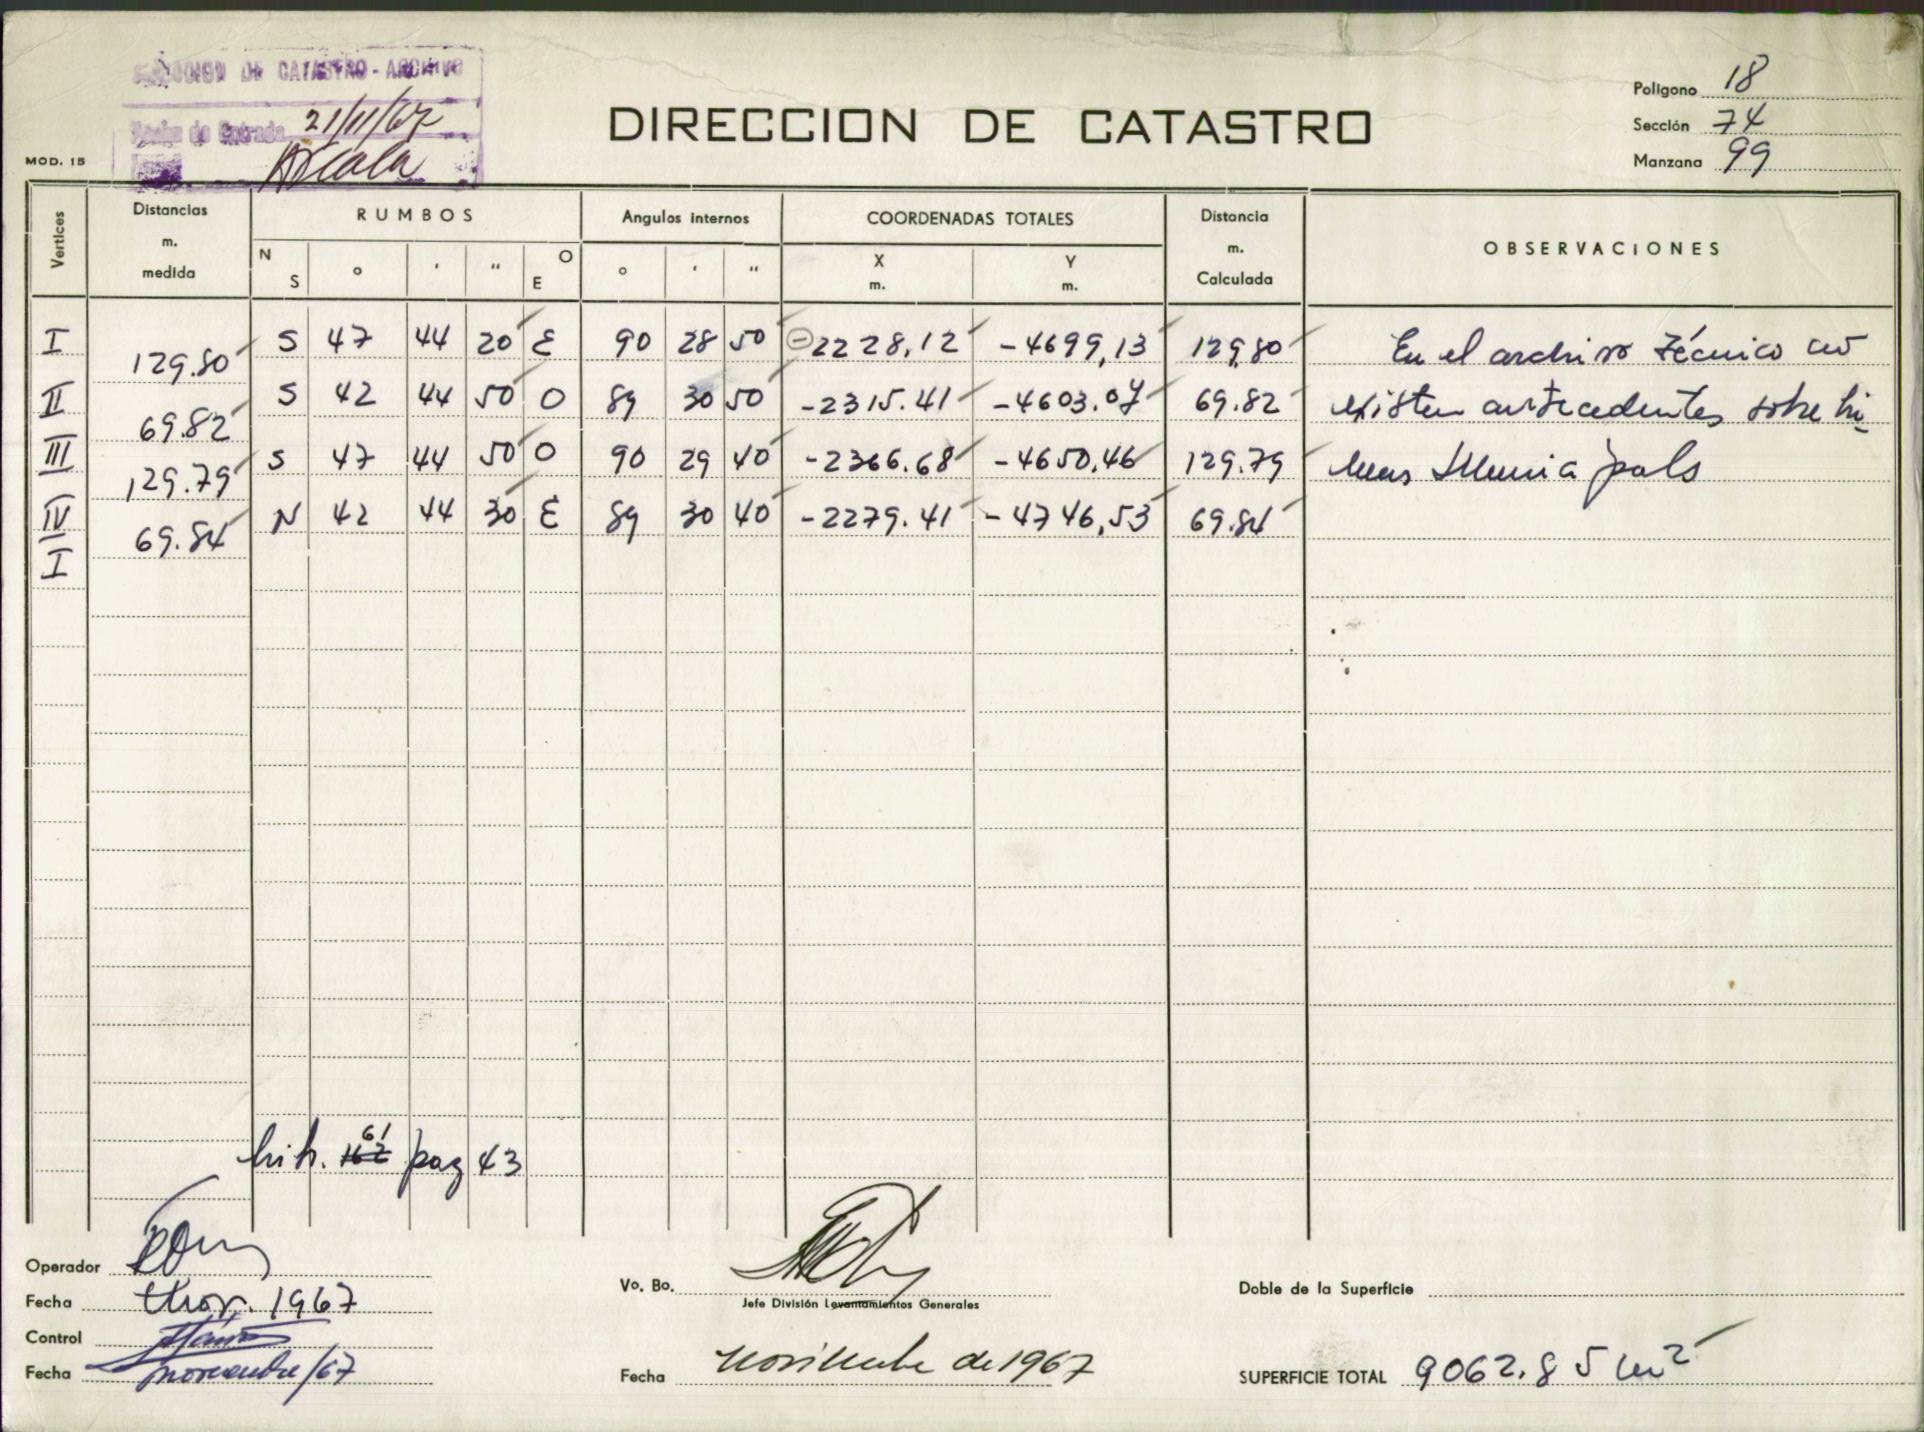 DIRECCION DE CATASTRO - ARCHIVO
Fecha de Entrada 21/11/67
MOD. 15
DIRECCION DE CATASTRO
Polígono 18
Sección 74
Manzana 99
Vertices Distancias m. medida RUMBOS Angulos internos COORDENADAS TOTALES Distancia m. Calculada OBSERVACIONES
N S ° ' " O E ° ' " X m. Y m.
I 129.80 S 47 44 20 E 90 28 50 -2228,12 -4699,13 129,80 En el archivo técnico no
II 69.82 S 42 44 50 O 89 30 50 -2315.41 -4603.07 69.82 existen antecedentes sobre li-
III 129.79 S 47 44 50 O 90 29 40 -2366.68 -4650.46 129.79 neas Municipals
IV 69.84 N 42 44 30 E 89 30 40 -2279.41 -4746,53 69.84
I
lib. 61 pag 43
Operador
Fecha 1967
Control
Fecha noviembre/67
Vo. Bo.
Jefe División Levantamientos Generales
Fecha noviembre de 1967
Doble de la Superficie
SUPERFICIE TOTAL 9062.85 m²